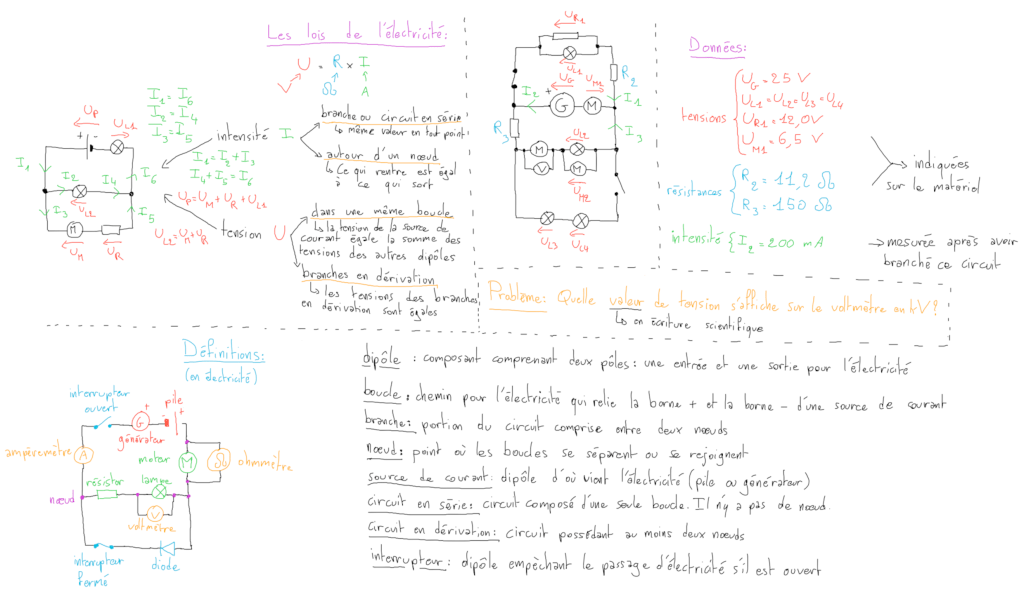 Les lois de l'électricité:
U = R x I
V
Ω
A
I1 = I6
I2 = I4
I3 = I5
UP
UL1
+
-
I1
I2
I4
I6
UL2
I3
I5
M
UM
UR
intensité I
I1 = I2 + I3
I4 + I5 = I6
UP = UM + UR + UL1
UL2 = UM + UR
tension U
branche ou circuit en série
↳ même valeur en tout point
autour d'un nœud
↳ Ce qui rentre est égal
à ce qui sort
dans une même boucle
↳ la tension de la source de
courant égale la somme des
tensions des autres dipôles
branches en dérivation
↳ les tensions des branches
en dérivation sont égales
UR1
UL1
R2
UG
UM1
I2
+
G
M
I1
R3
I3
UL2
M
V
M
UM2
UL3
UL4
Données:
tensions
UG = 25 V
UL1 = UL2 = UL3 = UL4
UR1 = 12,0V
UM1 = 6,5 V
résistances
R2 = 11,2 Ω
R3 = 150 Ω
→ indiquées
sur le matériel
intensité { I2 = 200 mA
→ mesurée après avoir
branché ce circuit
Problème: Quelle valeur de tension s'affiche sur le voltmètre en kV?
↳ en écriture scientifique
Définitions:
(en électricité)
interrupteur
ouvert
+
G
générateur
pile
+
ampèremètre
A
moteur
M
Ω
ohmmètre
résistor
lampe
nœud
V
voltmètre
interrupteur
fermé
diode
dipôle : composant comprenant deux pôles: une entrée et une sortie pour l'électricité
boucle : chemin pour l'électricité qui relie la borne + et la borne - d'une source de courant
branche: portion du circuit comprise entre deux nœuds
nœud: point où les boucles se séparent ou se rejoignent
source de courant: dipôle d'où vient l'électricité (pile ou générateur)
circuit en série: circuit composé d'une seule boucle. Il n'y a pas de nœud.
circuit en dérivation: circuit possédant au moins deux nœuds
interrupteur: dipôle empêchant le passage d'électricité s'il est ouvert